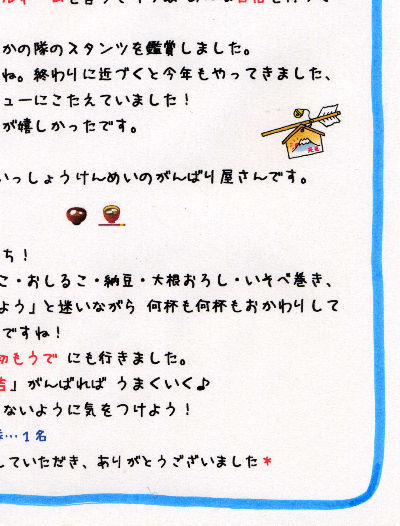 かの隊のスタンツを鑑賞しました。
ね。終わりに近づくと今年もやってきました、
ューにこたえていました！
が嬉しかったです。
いっしょうけんめいのがんばり屋さんです。
ち！
こ・おしるこ・納豆・大根おろし・いそべ巻き、
よう」と迷いながら 何杯も何杯もおかわりして
ですね！
初もうで にも行きました。
吉」がんばれば うまくいく♪
ないように気をつけよう！
…１名
していただき、ありがとうございました*